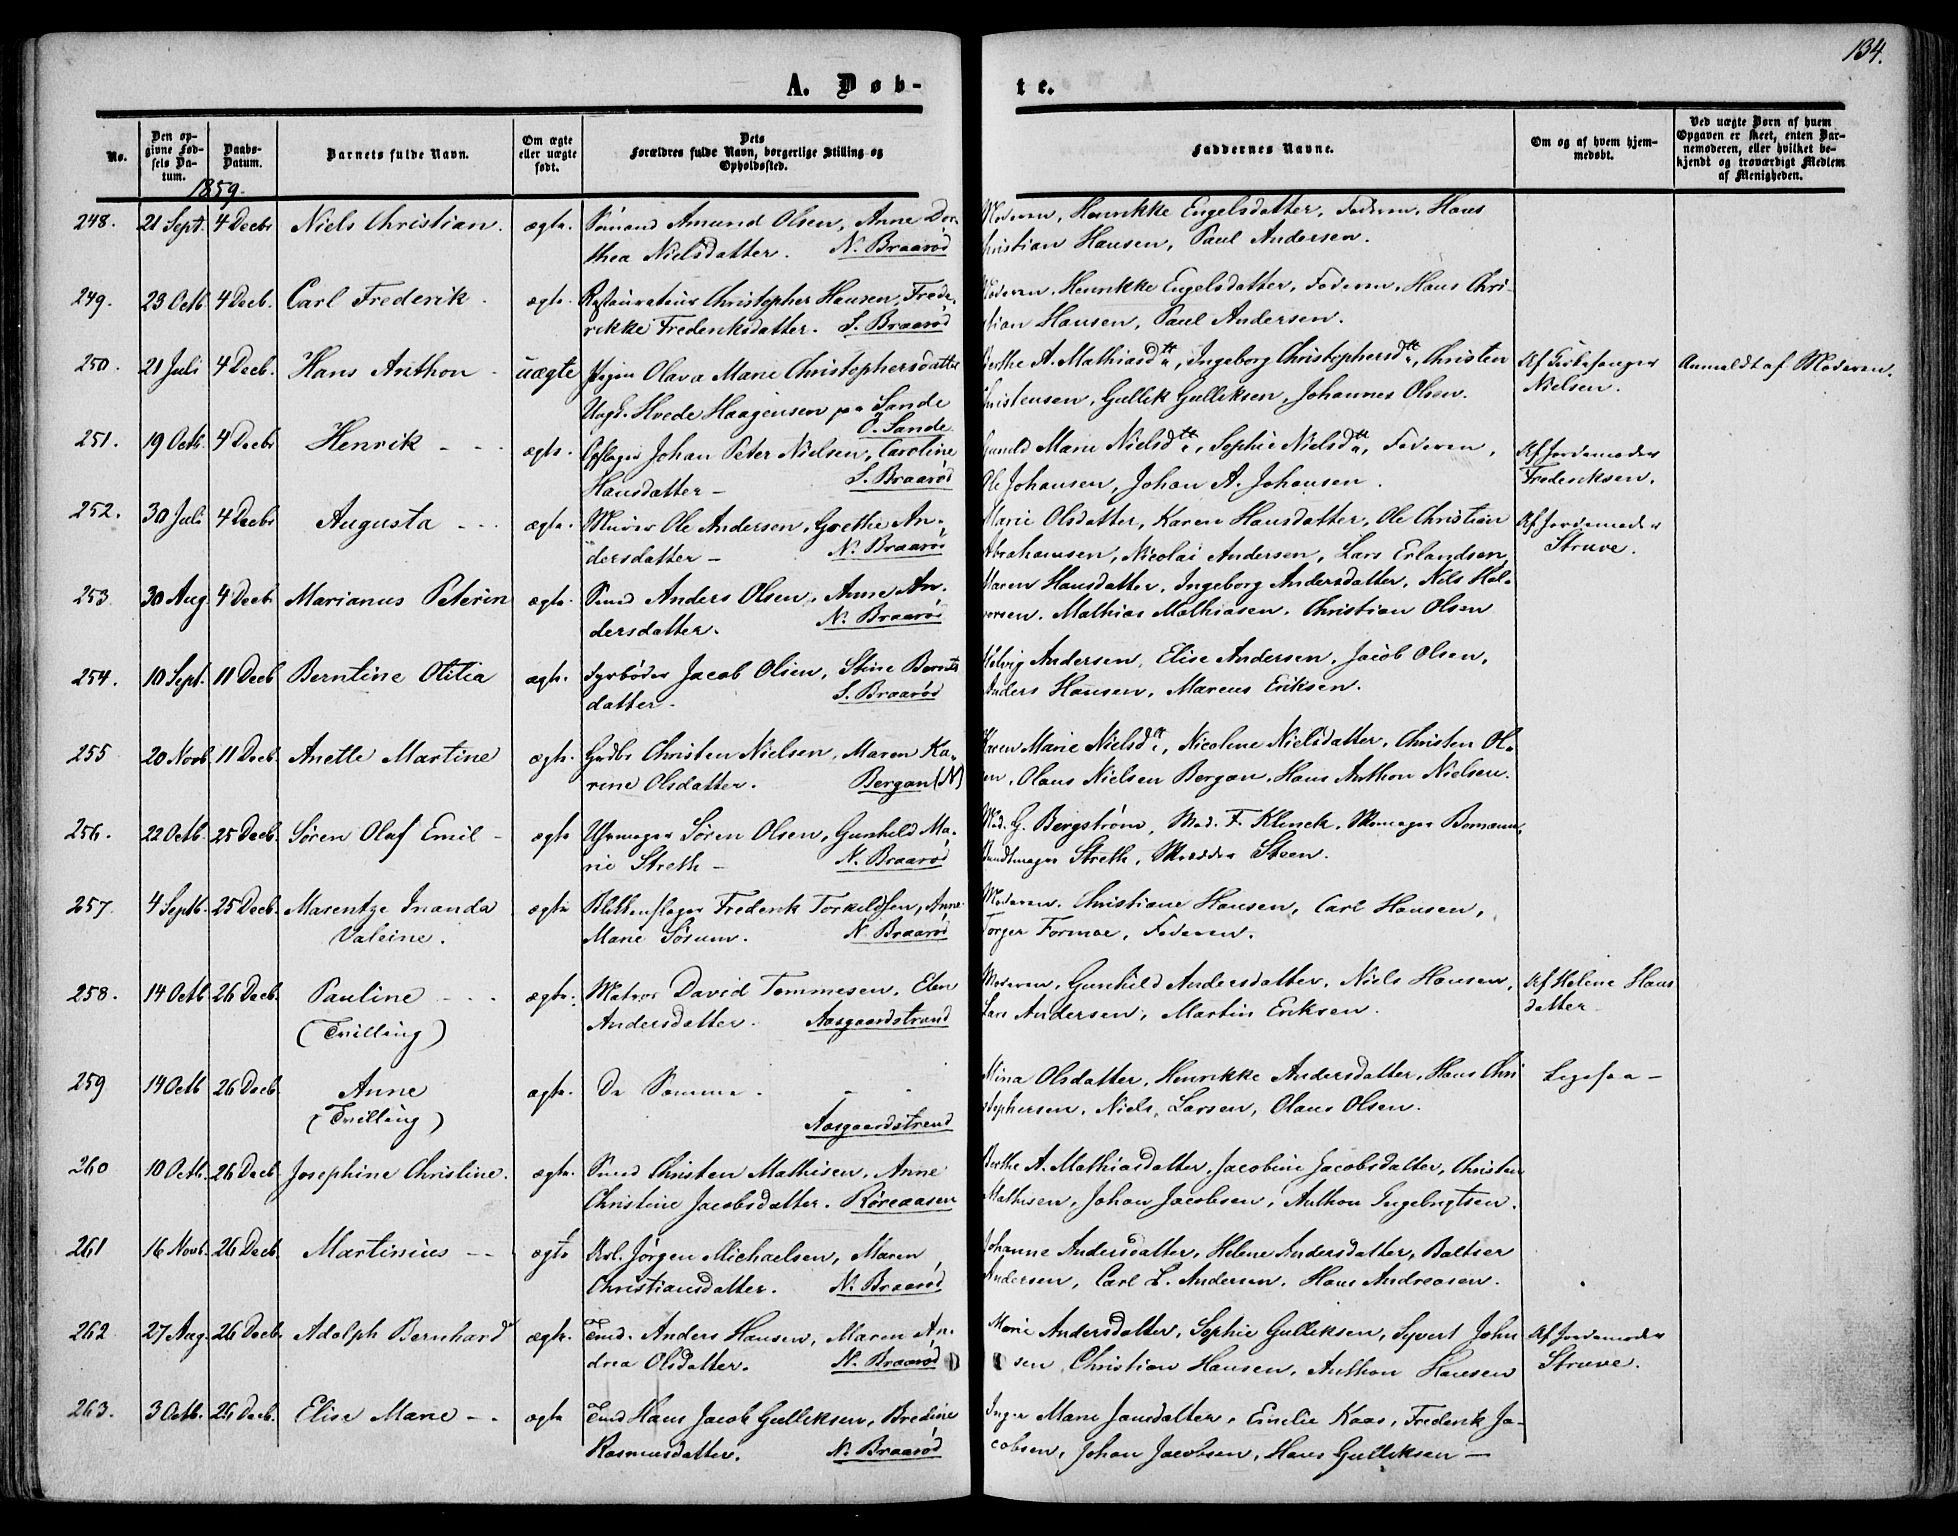 134.
A. Døb-
te.
No.
Den opgivne Fødsels Datum.
Daabs-Datum.
Barnets fulde Navn.
Om ægte eller uægte født.
Dets Forældres fulde Navn, borgerlige Stilling og Opholdssted.
Faddernes Navne.
Om og af hvem hjemmedøbt.
Ved uægte Børn af hvem Opgaven er skeet, enten Barnemoderen, eller hvilket bekjendt og troværdigt Medlem af Menigheden.
1859.
248. 21 Sept. 4 Decbr Niels Christian. ægte. Sømand Amund Olsen, Anne Dor- Moderen, Henrikke Engelsdatter, Faderen, Hans
thea Nielsdatter. N. Braarød Christian Hansen, Paul Andersen.
249. 23 Octb 4 Decb. Carl Frederik. ægte. Restaurateur Christopher Hansen, Frede- Moderen, Henrikke Engelsdatter, Faderen, Hans Chri-
rikke Frederiksdatter. S. Braarød stian Hansen, Paul Andersen.
250. 21 Juli 4 Decb. Hans Anthon - uægte Pigen Olava Marie Christophersdatter Berthe A. Mathiasdtr, Ingeborg Christophersdtr, Christen Af Kirkesanger Anmeldt af Moderen.
Ungk. Hvede Haagensen paa Sande Christensen, Gullik Gulliksen, Johannes Olsen. Nielsen.
Ø. Sande
251. 19 Octb. 4 Decbr Henrik - - ægte. Opslager Johan Peter Nielsen, Caroline Gunild Marie Nielsdtr, Sophie Nielsdtr, Faderen, Af Jordemoder
Hansdatter - S. Braarød Ole Johansen, Johan A. Johansen. Frederiksen.
252. 30 Juli 4 Decbr Augusta - - - ægte. Murer Ole Andersen, Grethe An- Marie Olsdatter, Karen Hansdatter, Ole Christian Af Jordemoder
dersdatter - N. Braarød Abrahamsen, Nicolai Andersen, Lars Erlandsen, Struve.
253 30 Aug. 4 Decb. Marianus Peterin ægte. Smed Anders Olsen, Anne An- Maren Hansdatter, Ingeborg Andersdatter, Nils Hal-
dersdatter. N. Braarød vorsen, Mathias Mathiasen, Christian Olsen
254. 10 Sept. 11 Decb Berntine Otilia ægte. Fyrbøder Jacob Olsen, Stine Bernts Andersen, Elise Andersen, Jacob Olsen,
datter. S. Braarød Anders Hansen, Marcus Eriksen.
255 20 Novb. 11 Decb. Anette Martine ægte. Grdbr Christen Nielsen, Maren Ka- Karen Marie Nielsdtr, Nicoline Nielsdatter, Christen Ol-
rine Olsdatter. Bergan (N) sen, Olaus Nielsen Bergan, Hans Anthon Nielsen.
256. 22 Octb. 25 Decb. Søren Olaf Emil - ægte Uhrmager Søren Olsen, Gunhild Ma- Mad. G. Bergstrøm, Mad. F. Klinck, Skomager Bomann,
rie Streth - N. Braarød Bundtmager Streth, Skrædder Steen.
257. 4 Septb. 25 Decb. Masentze Inanda ægte Blikkenslager Frederik Torkildsen, Anne Moderen, Christiane Hansen, Carl Hansen,
Valeine. Marie Sösum. N. Braarød Torger Formoe, Faderen.
258. 14 Octb 26 Decb. Pauline - - - ægte. Matros David Tommesen, Elen Moderen, Gunhild Andersdatter, Niels Hansen, Af Helene Hans
(Tvilling) Andersdatter. Aasgaardstrand Lars Andersen, Martin Eriksen. datter
259 14 Octb 26 Decb. Anne ægte. De Samme. - - Mina Olsdatter, Henrikke Andersdatter, Hans Chri Ligesaa -
(Tvilling) Aasgaardstrand stophersen, Niels Larsen, Olaus Olsen.
260 10 Octb. 26 Decb. Josephine Christine. ægte. Smed Christen Mathisen, Anne Berthe A. Mathiasdatter, Jacobine Jacobsdatter, Christen
Christine Jacobsdatter. Röreaasen Mathisen, Johan Jacobsen, Anthon Ingebrigtsen.
261 16 Novb. 26 Decb. Martinius - - ægte Jørgen Michaelsen, Maren Johanne Andersdatter, Helene Andersdatter, Baltser
Christiansdatter. N. Braarød Andersen, Carl L. Andersen, Hans Andreasen.
262 27 Aug. 26 Decb. Adolph Bernhard ægte. Tmd. Anders Hansen, Maren An- Marie Andersdatter, Sophie Gulliksen, Syvert John Af Jordemoder
drea Olsdatter. N. Braarød sen, Christian Hansen, Anthon Hansen Struve.
263. 3 Octb. 26 Decb. Elise Marie - - ægte Tmd Hans Jacob Gulliksen, Bredine Inger Marie Jansdatter, Emelie Kaas, Frederik Ja-
Rasmusdatter. N. Braarød cobsen, Johan Jacobsen, Hans Gulliksen -